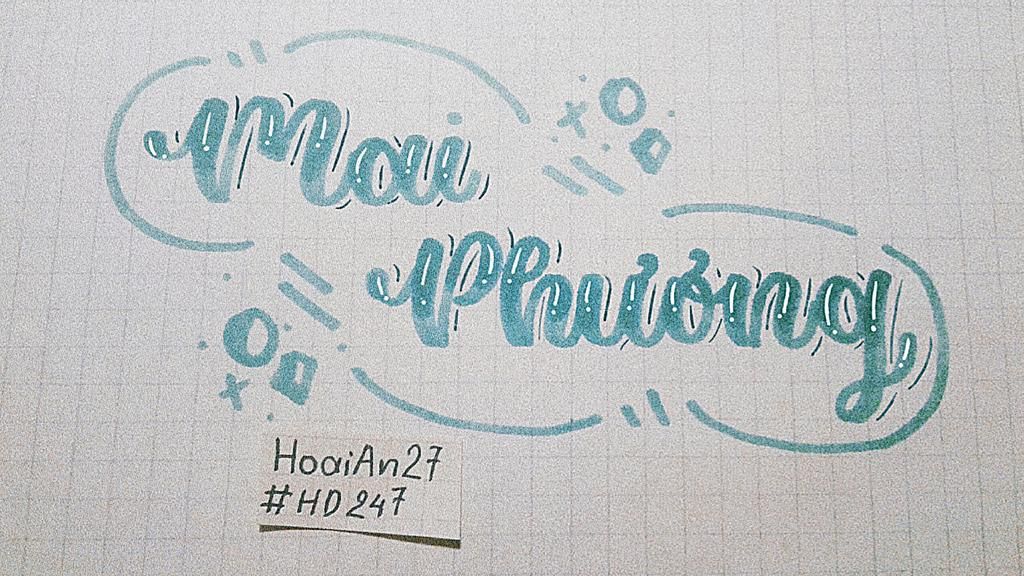 Mai
Phương
HoaiAn27
#HD247